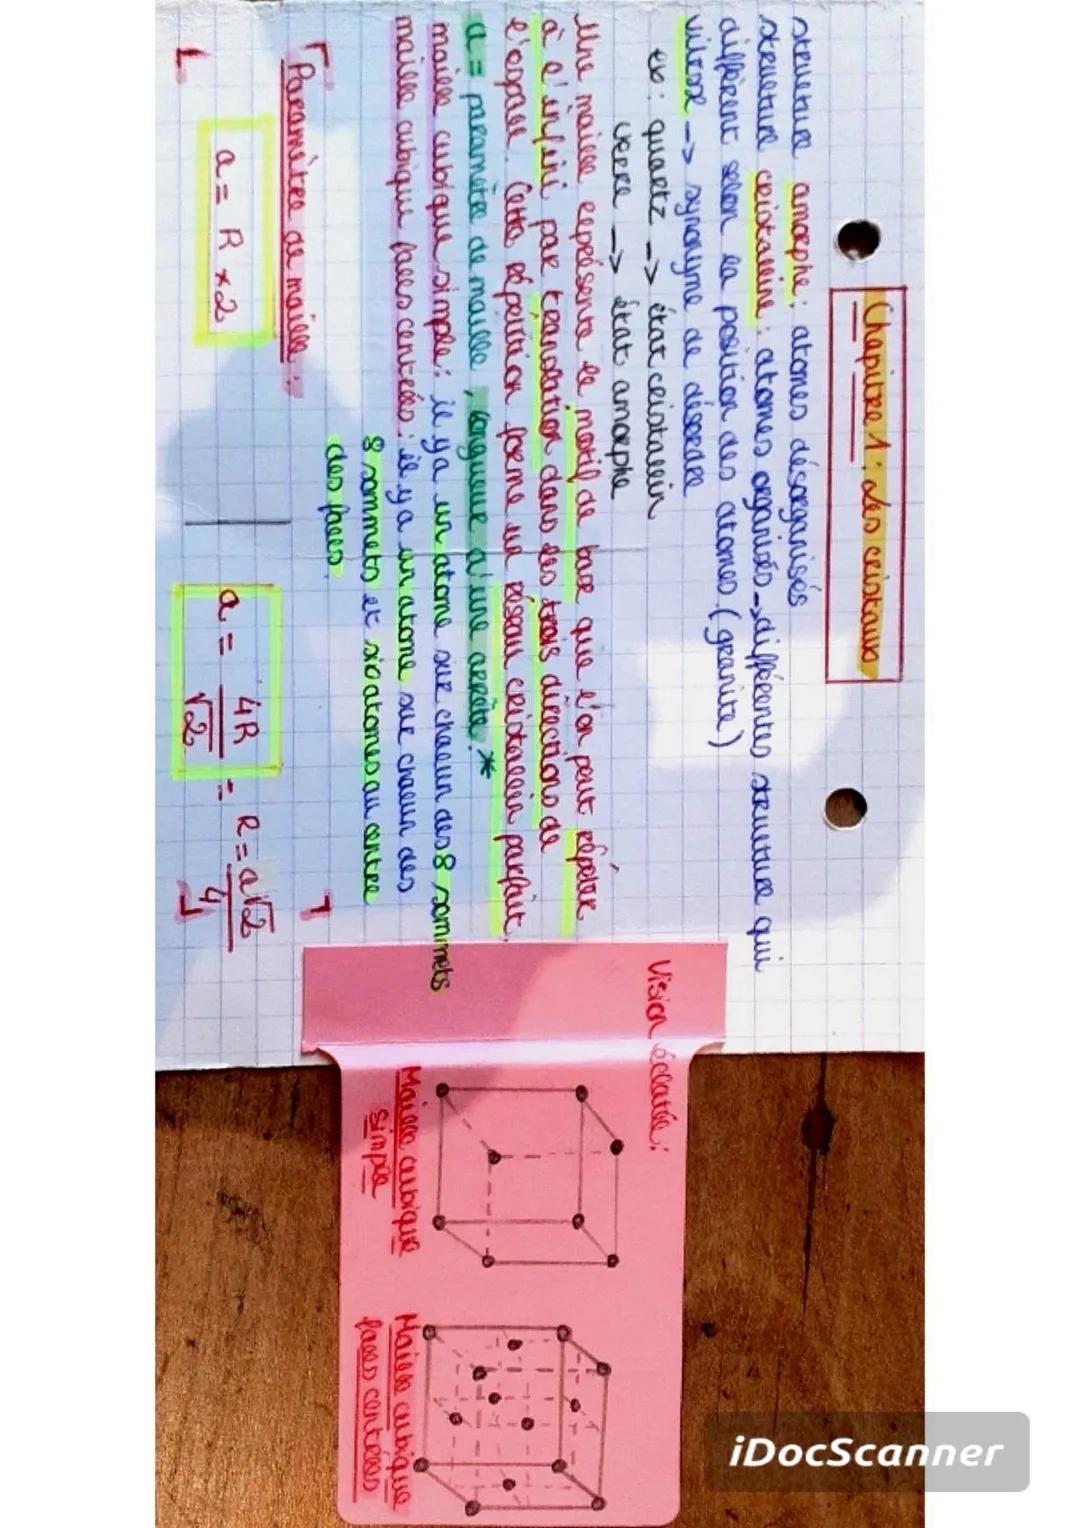 Chapitre 1 : Les cristaux
structure amorphe : atomes désorganisés
structure cristalline : atomes organisés -> différentes structure qui
diffèrent selon la position des atomes. (granite)
vitesse -> synonyme de désordre
ex : quartz -> état cristallin
verre -> état amorphe
Une maille représente le motif de base que l'on peut répéter
à l'infini par translation dans les trois directions de
l'espace. Cette répétition forme un réseau cristallin parfait.
a = paramètre de maille, longueur d'une arrête. *
maille cubique simple : il y a un atome sur chacun des 8 sommets
maille cubique faces centrées : il y a un atome sur chacun des
8 sommets et six atomes au centre
des faces.
Paramètre de maille :
a = R × 2
a = 4R/√2 = R = a√2/4
Vision éclatée :
Maille cubique
simple
Maille cubique
faces centrées
iDocScanner